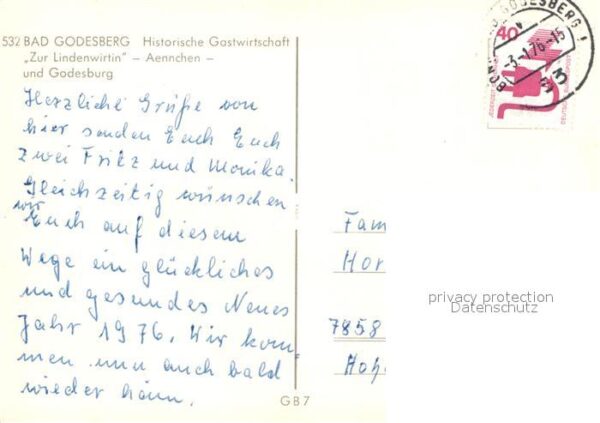 532 BAD GODESBERG Historische Gastwirtschaft
„Zur Lindenwirtin" – Aennchen –
und Godesburg
Herzliche Grüße von
hier senden Euch Euch
zwei Fritz und Monika.
Gleichzeitig wünschen
wir
Euch auf diesem
Wege ein glückliches
und gesundes Neues
Jahr 1976. Wir kom-
men nun auch bald
wieder heim.
GB7
40
GODESBERG 1
BONN
-3-1.76-15
53
Fam
Hor
7858
privacy protection
Datenschutz